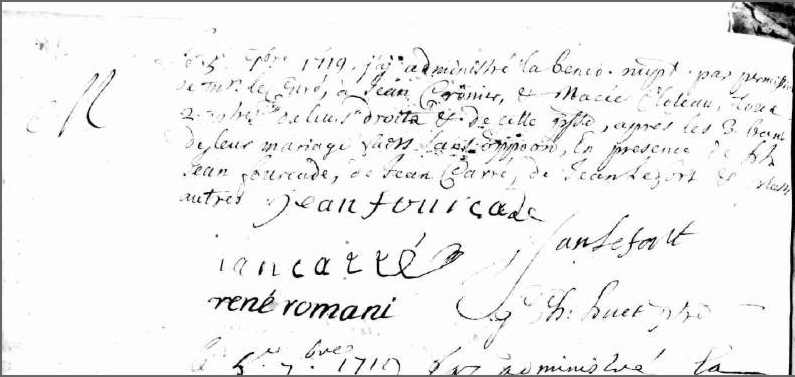 M
le 5e 7bre 1719 j'ay administré la bened. nupt. par permission
de mr le Curé, à Jean Cronier, & Macée Cloteau, tous
2 maîtres de leurs droits & de cette psse, apres les 3 bans
de leur mariage sans oppoon, En presence de
Jean fourcade, de Jean Carré, de Jean Lefort &
autres jean fourcade
ian carré Jan Lefort
rené romani G Th. huet pbre
Le 5me 7bre 1719 j'ay administré la